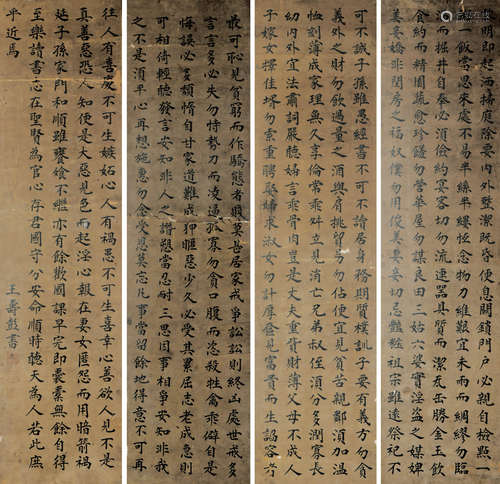 明即起洒掃庭除內外整潔既昏便息關鎖門戶必親自檢點一
一飯當思來處不易半絲半縷恆念物力維艱宜未雨而綢繆勿臨
而掘井自奉必須儉約宴客切勿流連器具質而潔瓦缶勝金玉飲
食約而精園蔬愈珍饈勿營華屋勿謀良田三姑六婆實淫盜之媒婢
美妾嬌非閨房之福奴僕勿用俊美妻妾切忌艷粧祖宗雖遠祭祀不
可不誠子孫雖愚經書不可不讀居身務期質樸訓子要有義方勿貪
義外之財勿飲過量之酒與肩挑貿易勿佔便宜見貧苦親鄰須加温
恤刻薄成家理無久享倫常乖舛立見消亡兄弟叔侄須分多潤寡長
幼內外宜法肅詞嚴聽婦言乖骨肉豈是丈夫重貲財薄父母不成人
子嫁女擇佳壻勿索重聘娶媳求淑女勿計厚奩見富貴而生諂容者
最可恥見貧窮而作驕態者賤莫甚居家戒爭訟訟則終凶處世戒多
言言多必失勿恃勢力而凌逼孤寡勿貪口腹而恣殺牲禽乖僻自是
悔誤必多頹惰自甘家道難成狎暱惡少久必受其累屈志老成急則
可相倚輕聽發言安知非人之譖愬當忍耐三思因事相爭安知非我
之不是須平心再想施惠勿念受恩莫忘凡事當留餘地得意不可再
往人有喜慶不可生嫉妬心人有禍患不可生喜幸心善欲人見不是
真善惡恐人知便是大惡見色而起淫心報在妻女匿怨而用暗箭禍
延子孫家門和順雖饔飧不繼亦有餘歡國課早完即囊橐無餘自得
至樂讀書志在聖賢為官心存君國守分安命順時聽天為人若此庶
乎近焉
王壽彭書